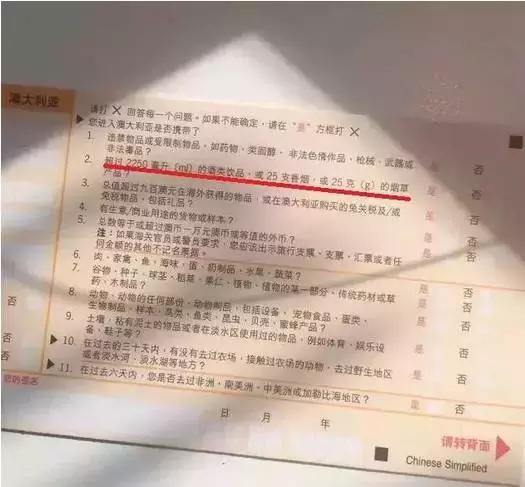 澳大利亚
请打 X 回答每一个问题。如果不能确定，请在“是”方框打 X
▶您进入澳大利亚是否携带了
1. 违禁物品或受限制物品，如药物、类固醇、非法色情作品、枪械、武器或 是 否
非法毒品？
2. 超过 2250 毫升（ml）的酒类饮品，或 25 支香烟，或 25 克（g）的烟草 是 否
产品？
3. 总值超过九百澳元在海外获得的物品，或在澳大利亚购买的免关税及/或 是 否
免税物品，包括礼品？
4. 有生意/商业用途的货物或样本？ 是 否
5. 总数等于或超过澳币一万元澳币或等值的外币？ 是 否
注：如果海关官员或警员要求，您应该出示旅行支票、支票、汇票或者任
何金额的其他不记名票据。
6. 肉、家禽、鱼、海味、蛋、奶制品、水果、蔬菜？ 是 否
7. 谷物、种子、球茎、稻草、果仁、植物、植物的某一部分、传统药材或草 是 否
药、木制品？
8. 动物、动物的任何部份、动物制品，包括设备、宠物食品、蛋类、 是 否
生物制品、样本、鸟类、鱼类、昆虫、贝壳、蜜蜂产品？
9. 土壤，粘有泥土的物品或者在淡水区使用过的物品，例如体育、娱乐设 是 否
备、鞋子等？
▶ 10. 在过去的三十天内，有没有去过农场，接触过农场的动物，去过野生地区 是 否
或者淡水河、淡水湖等地方？
▶ 11. 在过去六天内，您是否去过非洲、南美洲、中美洲或加勒比海地区？ 是 否
您的签名
日 月 年
请转背面
Chinese Simplified